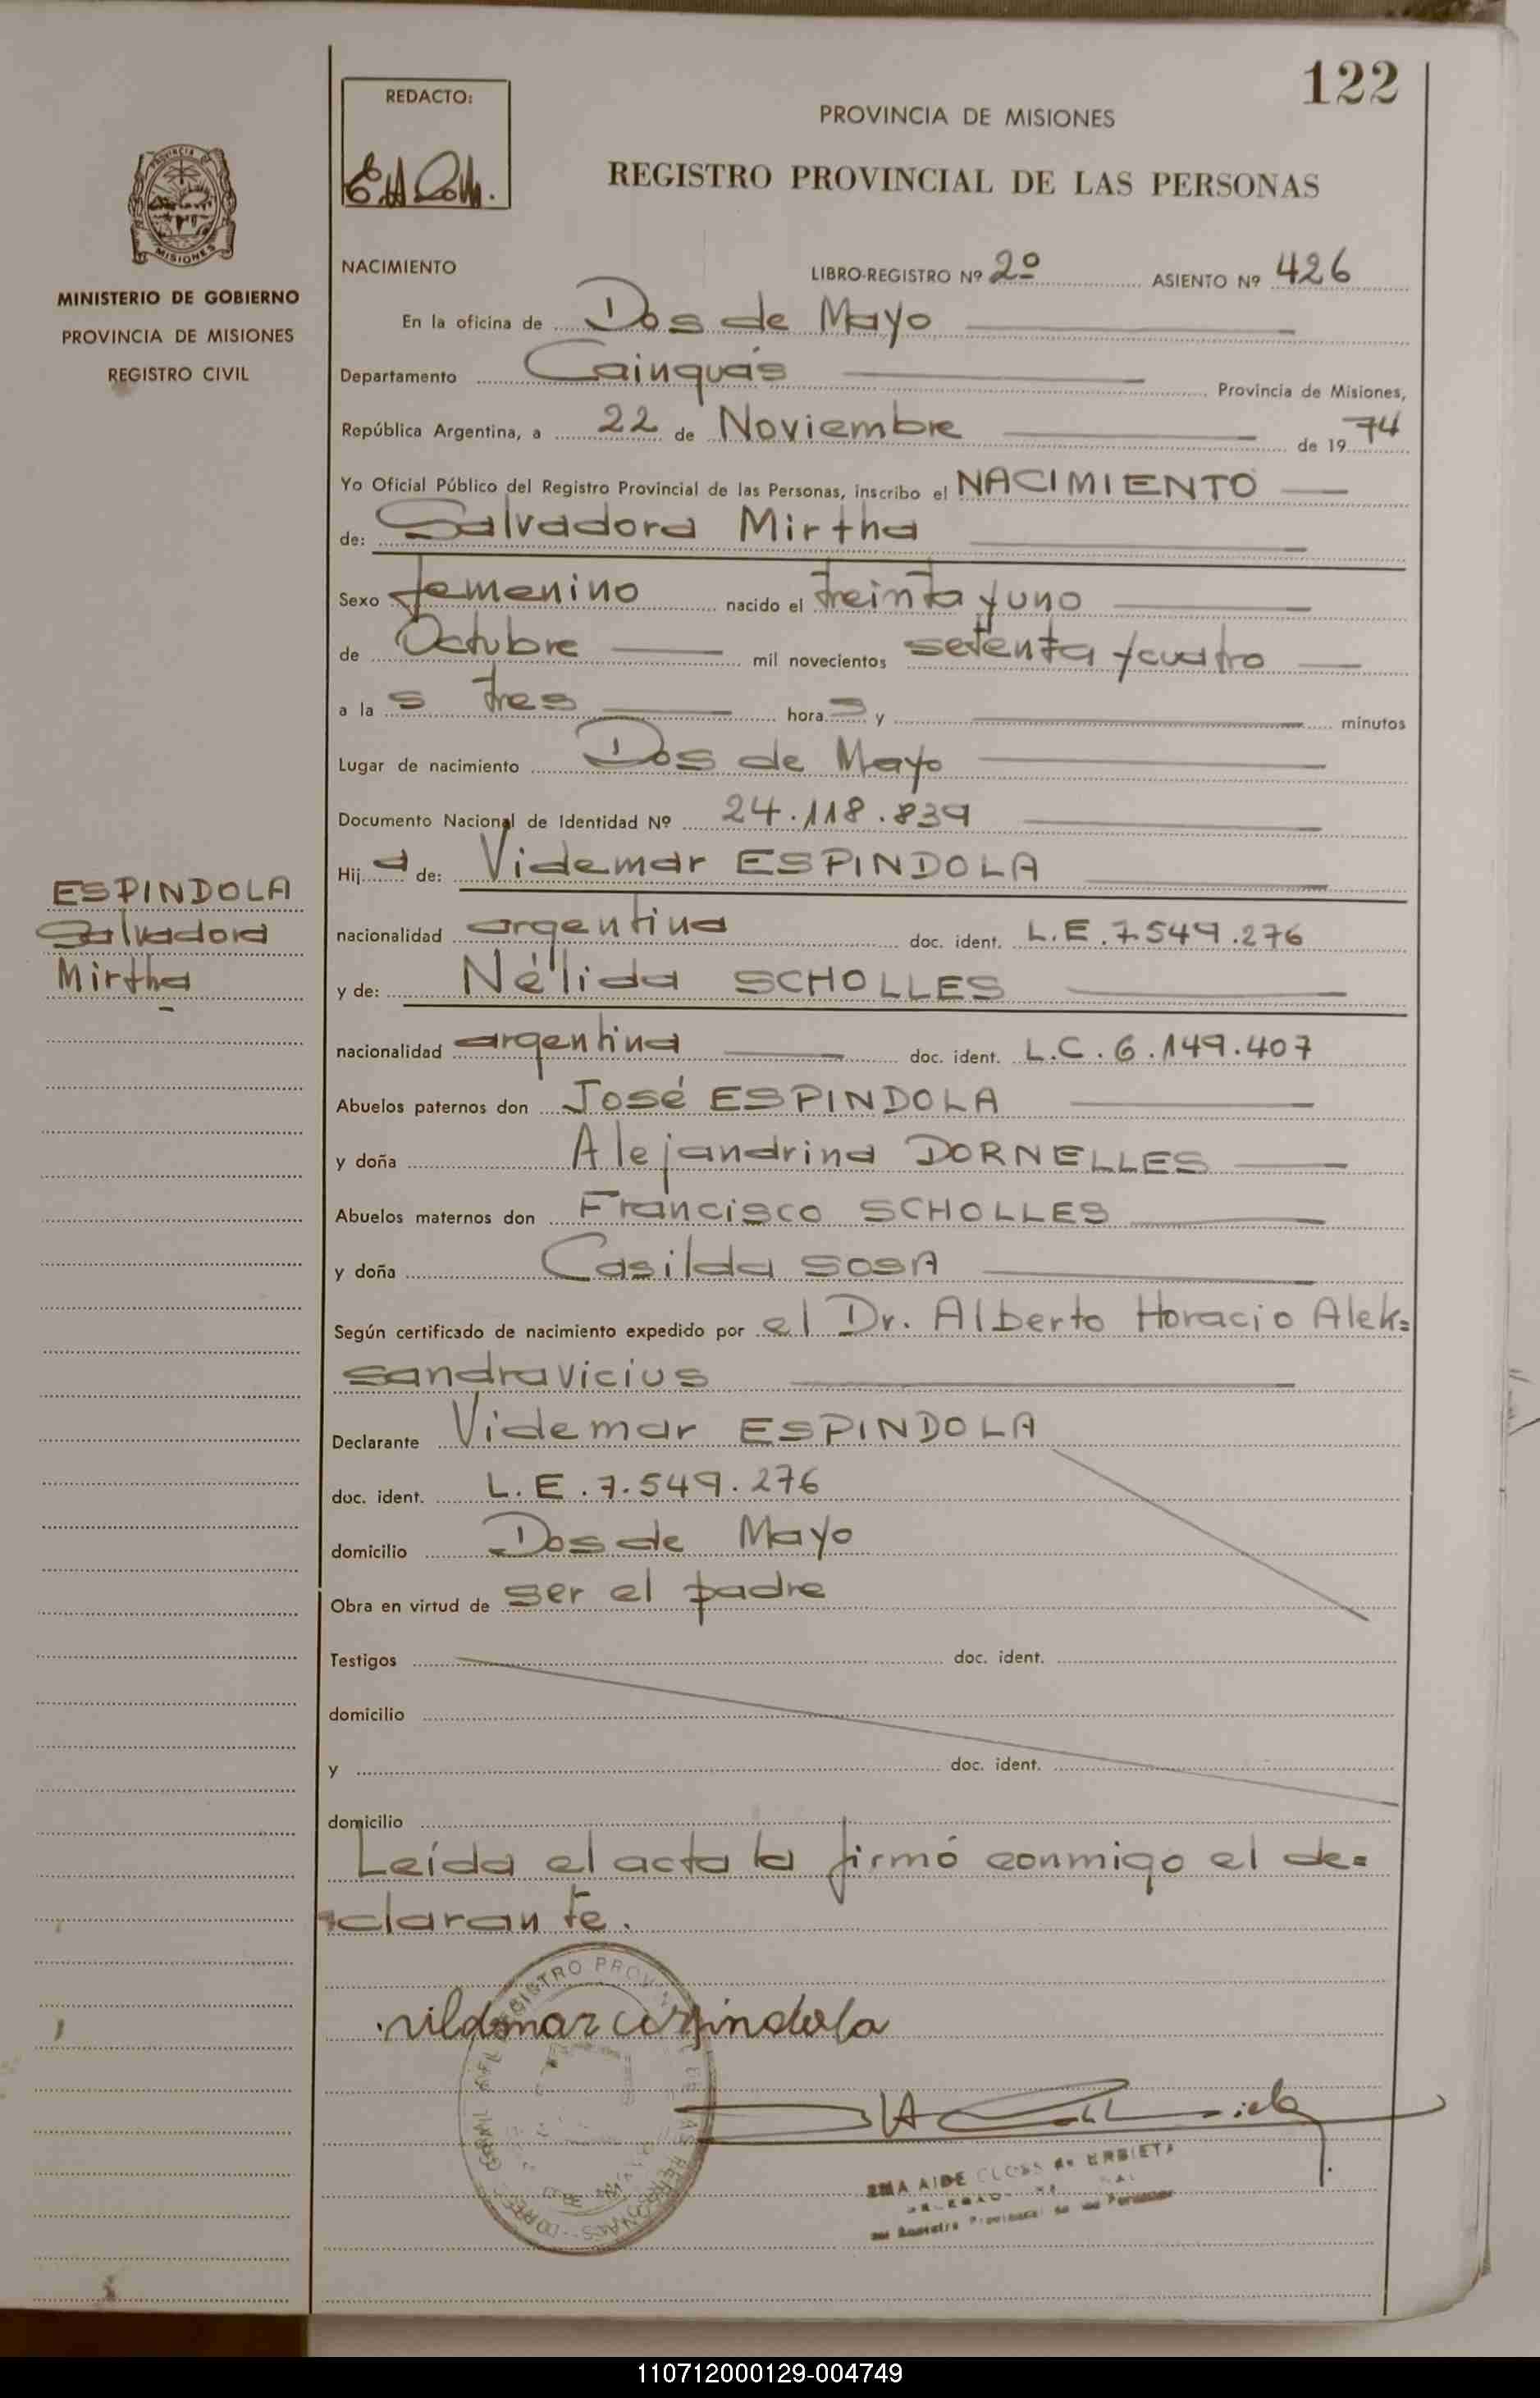 122
REDACTO:
PROVINCIA DE MISIONES
REGISTRO PROVINCIAL DE LAS PERSONAS
PROVINCIA
MISIONES
MINISTERIO DE GOBIERNO
PROVINCIA DE MISIONES
REGISTRO CIVIL
NACIMIENTO LIBRO-REGISTRO Nº 2º ASIENTO Nº 426
En la oficina de Dos de Mayo
Departamento Cainguás Provincia de Misiones,
República Argentina, a 22 de Noviembre de 19 74
Yo Oficial Público del Registro Provincial de las Personas, inscribo el NACIMIENTO
de: Salvadora Mirtha
Sexo femenino nacido el treinta y uno
de Octubre mil novecientos setenta y cuatro
a la s tres hora s y minutos
Lugar de nacimiento Dos de Mayo
Documento Nacional de Identidad Nº 24.118.839
Hij a de: Videmar ESPINDOLA
ESPINDOLA
Salvadora
Mirtha
nacionalidad argentina doc. ident. L.E.7.549.276
y de: Nélida SCHOLLES
nacionalidad argentina doc. ident. L.C.6.149.407
Abuelos paternos don José ESPINDOLA
y doña Alejandrina DORNELLES
Abuelos maternos don Francisco SCHOLLES
y doña Casilda SOSA
Según certificado de nacimiento expedido por el Dr. Alberto Horacio Alek=
sandravicius
Declarante Videmar ESPINDOLA
doc. ident. L.E.7.549.276
domicilio Dos de Mayo
Obra en virtud de ser el padre
Testigos doc. ident.
domicilio
y doc. ident.
domicilio
Leída el acta la firmó conmigo el de=
clarante.
REGISTRO PROVIN
PERSONAS
vildomar espindola
AIDE
110712000129-004749